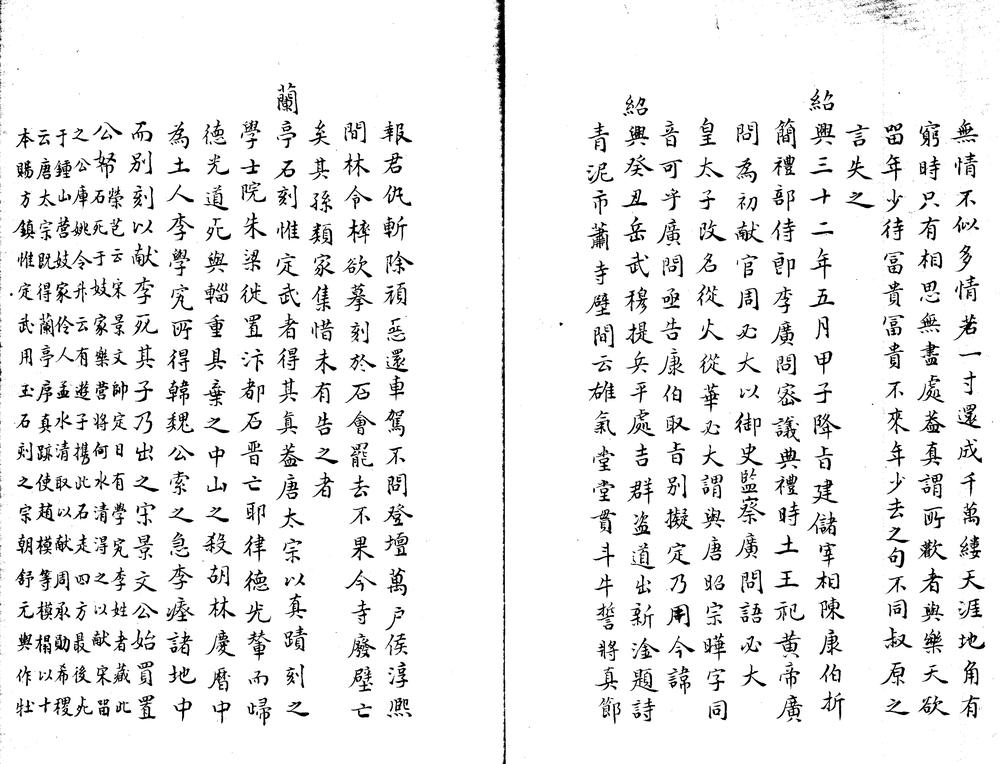 無情不似多情若一寸還成千萬縷天涯地角有
窮時只有相思無盡處葢真謂所歡者與樂天欲
畱年少待冨貴冨貴不來年少去之句不同叔原之
言失之
紹興三十二年五月甲子降旨建儲宰相陳康伯折
簡禮部侍郎李廣問宻議典禮時土王祀黄帝廣
問為初献官周必大以御史監察廣問語必大
皇太子改名從火從華必大謂與唐昭宗曄字同
音可乎廣問亟告康伯取旨別擬定乃用今諱
紹興癸丑岳武穆提兵平處吉群盗道出新淦題詩
青泥市蕭寺壁間云雄氣堂堂貫斗牛誓將真節
報君仇斬除頑惡還車駕不問登壇萬戸侯淳熙
間林令梓欲摹刻於石會罷去不果今寺廢壁亡
矣其孫類家集惜未有告之者
蘭亭石刻惟定武者得其真葢唐太宗以真蹟刻之
學士院朱梁徙置汴都石晋亡耶律德光輦而歸
德光道死與輜重具棄之中山之殺胡林慶曆中
為土人李學究所得韓魏公索之急李瘞諸地中
而別刻以献李死其子乃出之宋景文公始買置
公帑榮芑云宋景文帥定日有學究李姓者藏此
石死于妓家樂營將何水清得之以献宋畱
之公庫姚令升云有遊子携此石走四方最後死
于鍾山營妓家伶人孟水清取以献周承勛希稷
云唐太宗既得蘭亭序真跡使趙模等模搨以十
本賜方鎮惟定武用玉石刻之宗朝舒元輿作牡